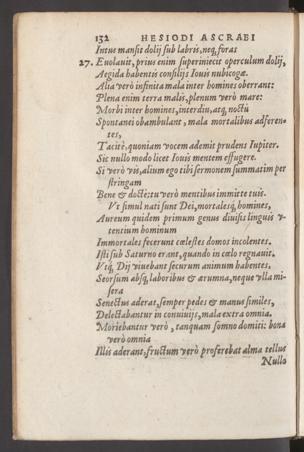 132 HESIODI ASCRAEI
Intus mansit dolij sub labris, neq, foras
27. Euolauit, prius enim superiniecit operculum dolij,
Aegida habentis consilijs Iouis nubicogæ.
Alia verò infinita mala inter homines oberrant:
Plena enim terra malis, plenum verò mare:
Morbi inter homines, interdiu, atq, noctù
Spontanei obambulant, mala mortalibus adferen-
tes,
Tacitè, quoniam vocem ademit prudens Iupiter.
Sic nullo modo licet Iouis mentem effugere.
Si verò vis, alium ego tibi sermonem summatim per
stringam
Bene & doctè: tu verò mentibus immitte tuis.
Vt simul nati sunt Dei, mortalesq, homines,
Aureum quidem primum genus diuisis linguis v-
tentium hominum
Immortales fecerunt cœlestes domos incolentes.
Isti sub Saturno erant, quando in cœlo regnauit.
Vtq, Dij viuebant securum animum habentes,
Seorsum absq, laboribus & ærumna, neque vlla mi-
sera
Senectus aderat, semper pedes & manus similes,
Delectabantur in conuiuijs, mala extra omnia.
Moriebantur verò, tanquam somno domiti: bona
verò omnia
Illis aderant, fructum verò proferebat alma tellus
Nullo